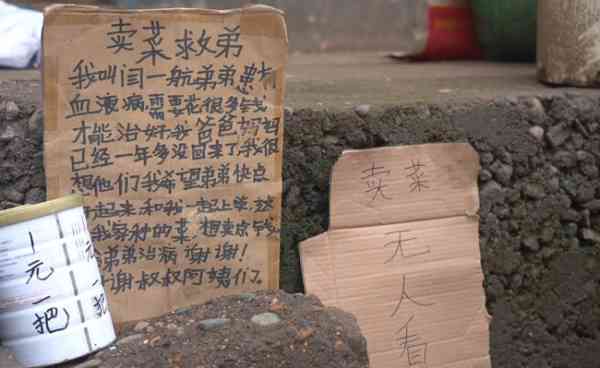 卖菜救弟
我叫闫一航弟弟患有
血液病需要花很多钱
才能治好我爸爸妈妈
已经一年多没回来了我很
想他们我希望弟弟快点
起来和我一起上学,这
我家种的菜,想卖点钱
弟弟治病谢谢!
谢叔叔阿姨们
1元一把
元一把
卖菜
无人看